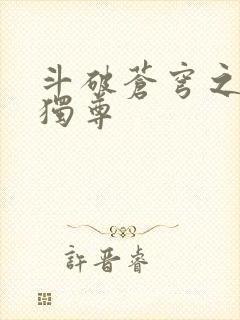 斗破蒼穹之
獨尊
許晋睿